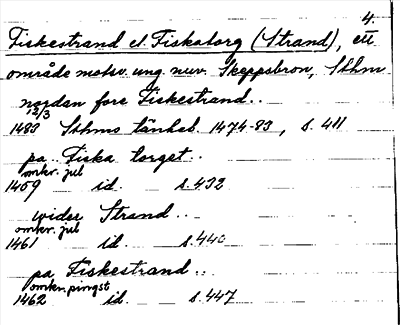 4.
Fiskestrand el. Fiskatorg (Strand), ett
område motsv. ung. nuv. Skeppsbron, Sthm
nordan fore Fiskestrand..
12/3
1483 Sthms tänkeb. 1474-83, s. 411
pa Fiska torget..
omkr. jul
1459 id. s. 432
wider Strand..
omkr. jul
1461 id. s. 440
pa Fiskestrand..
omkr. pingst
1462 id. s. 447